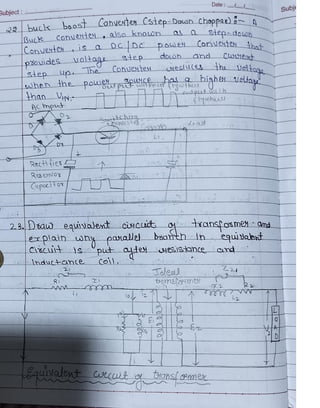 Subject :
Date :
22 buck boost Converter (step-Down chopper) :- A
Buck converter, also known as a step-down
Converter, is a DC/DC power Converter that
provides voltage step down and current
step up. The Converter reduces the voltage
when the power source has a higher voltage
than VIN.
output without flywheel
output with
flywheel
AC Input
D2
D3
switching
Load
Rectifier
Reservior
Capacitor
2.3. Draw equivalent circuit of transformer and
explain why parallel branch in equivalent
circuit is put after resistance and
inductance coil.
Ideal
transformer
Z1
Z2
R1
X2
R2
I2
E1
E2
LOAD
Equivalent circuit of transformer